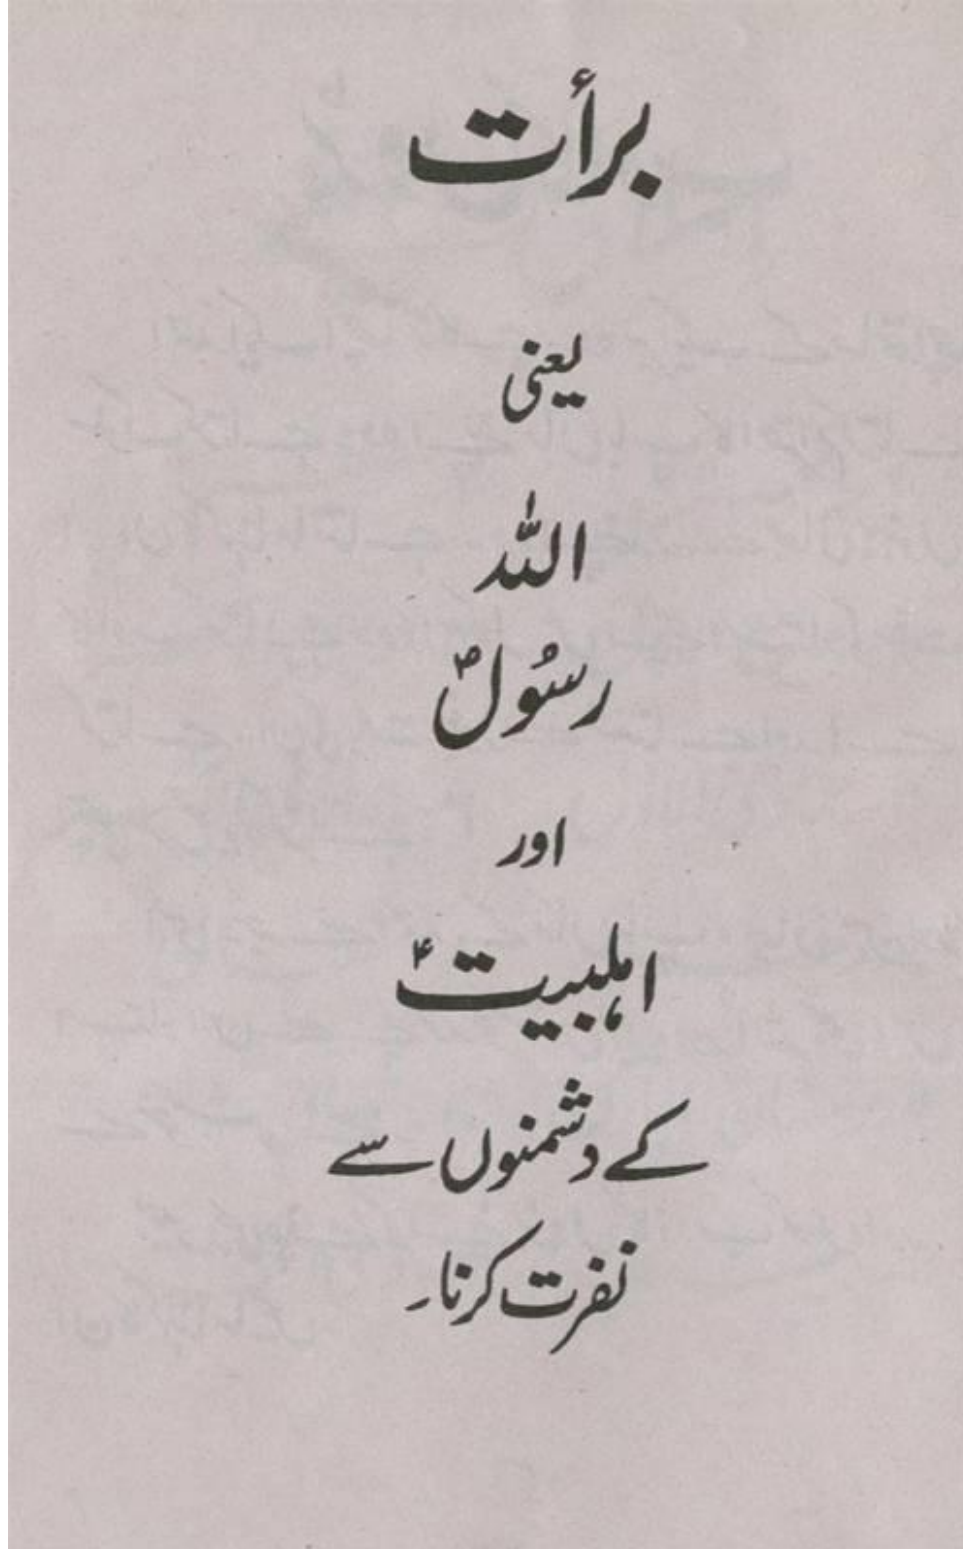 برأت
یعنی
اللہ
رسُولؐ
اور
اہلبیتؑ
کے دشمنوں سے
نفرت کرنا۔